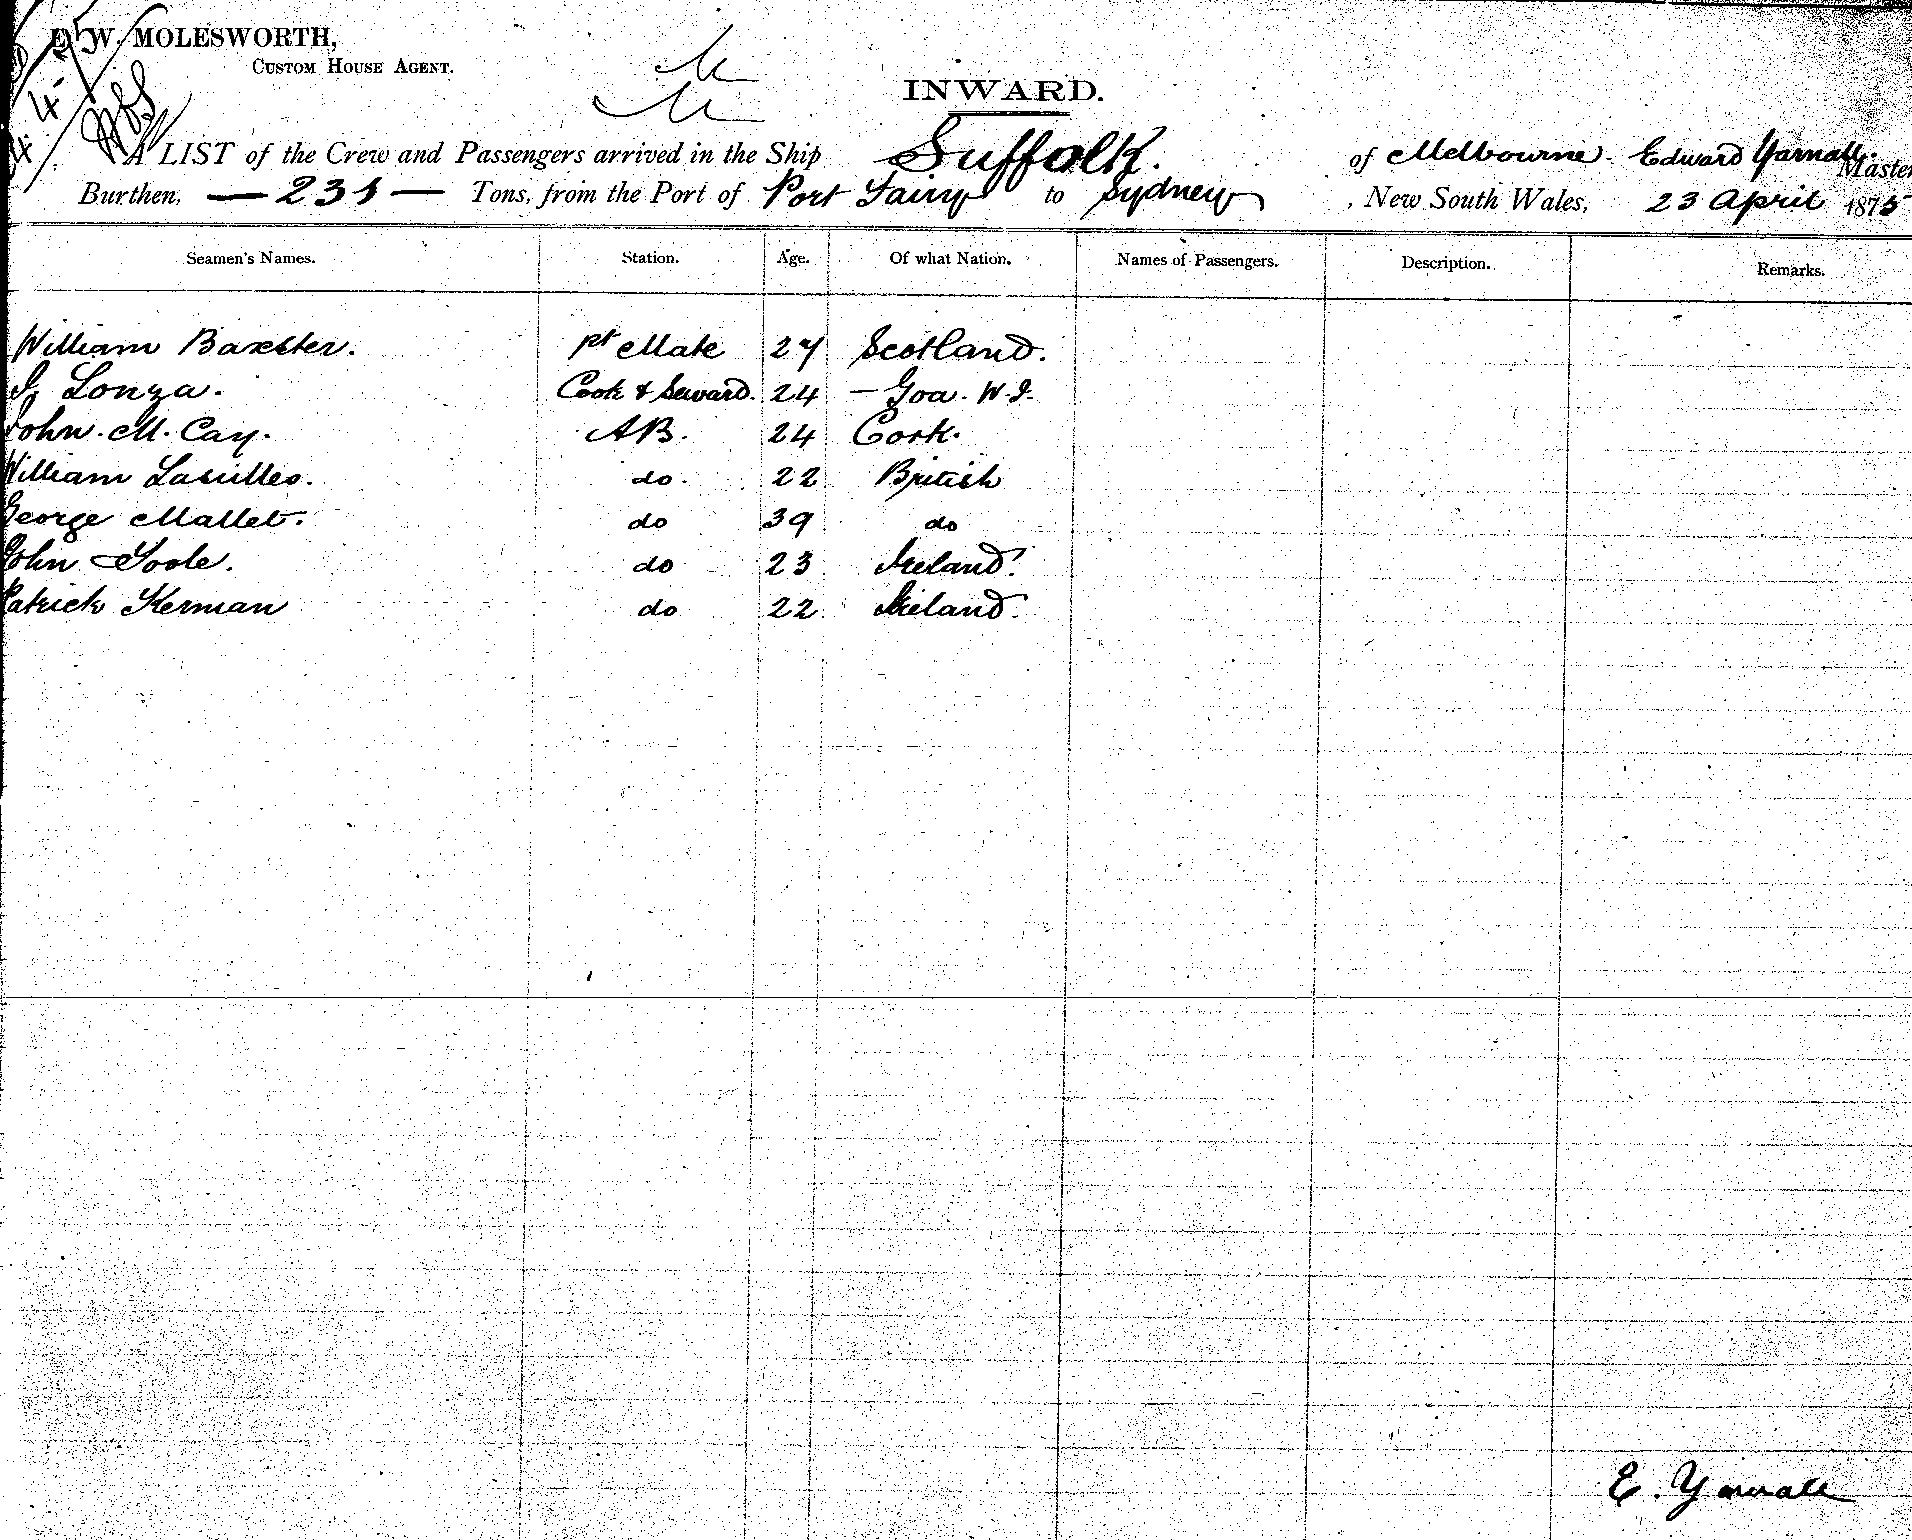 E. W. MOLESWORTH,
CUSTOM HOUSE AGENT.
INWARD.
A LIST of the Crew and Passengers arrived in the Ship Suffolk. of Melbourne. Edward Yarnall. Master
Burthen, — 231 — Tons, from the Port of Port Fairy to Sydney, New South Wales, 23 April 1875
Seamen's Names. Station. Age. Of what Nation. Names of Passengers. Description. Remarks.
William Baxster. Mate 27 Scotland.
Lonza. Cook & Seward. 24 — Goa. W.I.
John. M. Cay. AB. 24 Cork.
William Lasilles. do. 22 British
George Mallet. do 39 do
John Toole. do 23 Ireland.
Patrick Kerman do 22 Ireland.
E. Yarnall